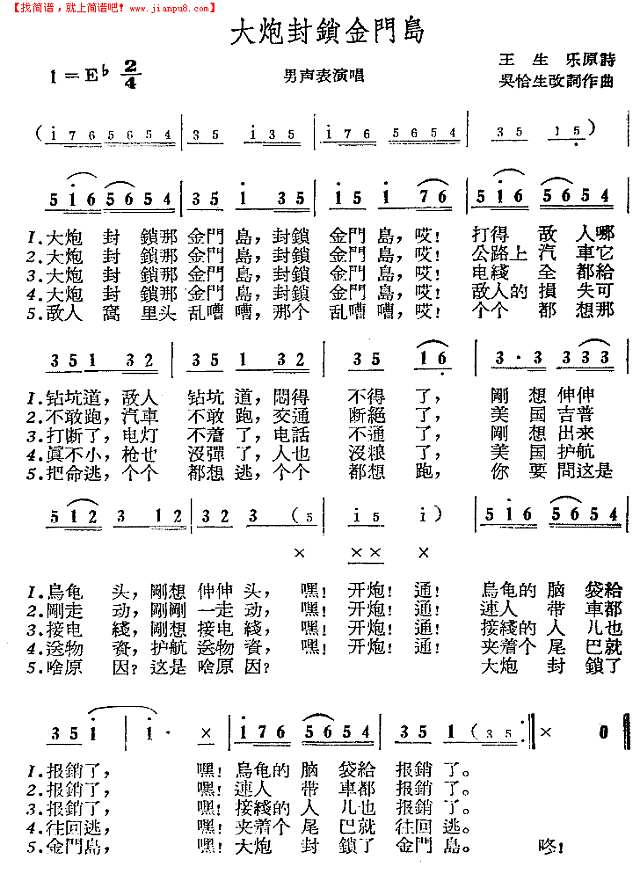 【找简谱，就上简谱吧！www.jianpu8.com】
大炮封鎖金門島
1=E♭ 2/4
男声表演唱
王生乐原詩
吳恰生改詞作曲
(i 7 6 5 6 5 4 | 3 5 i 3 5 | i 7 6 5 6 5 4 | 3 5 1 5)
5 i 6 5 6 5 4 | 3 5 i 3 5 | 1 5 i 7 6 | 5 i 6 5 6 5 4
1.大炮 封 鎖那 金門 島，封鎖 金門 島，哎！ 打得 敌 人哪
2.大炮 封 鎖那 金門 島，封鎖 金門 島，哎！ 公路上 汽 車它
3.大炮 封 鎖那 金門 島，封鎖 金門 島，哎！ 电綫 全 都給
4.大炮 封 鎖那 金門 島，封鎖 金門 島，哎！ 敌人的 損 失可
5.敌人 窩 里头 乱嘈 嘈，那个 乱嘈 嘈，哎！ 个个 都 想那
3 5 1 3 2 | 3 5 1 3 2 | 3 5 1 6 | 3 · 3 3 3 3
1.钻坑道，敌人 钻坑 道，悶得 不得 了， 剛 想 伸伸
2.不敢跑，汽車 不敢 跑，交通 断絕 了， 美 国 吉普
3.打断了，电灯 不着 了，电話 不通 了， 剛 想 出来
4.眞不小，枪也 沒彈 了，人也 沒粮 了， 美 国 护航
5.把命逃，个个 都想 逃，个个 都想 跑， 你 要 問这是
5 1 2 3 1 2 | 3 3 2 3 (5 | i 5 i) | 5 i 6 5 6 5 4
× × × ×
1.烏龟 头，剛想 伸伸 头，嘿！开炮！通！ 烏龟的 脑 袋給
2.剛走 动，剛剛 一走 动，嘿！开炮！通！ 連人 带 車都
3.接电 綫，剛想 接电 綫，嘿！开炮！通！ 接綫的 人 儿也
4.送物 資，护航 送物 資，嘿！开炮！通！ 夹着个 尾 巴就
5.啥原 因？这是 啥原 因？ 大炮 封 鎖了
3 5 i | i · × | i 7 6 5 6 5 4 | 3 5 1 (3 5 :‖ × 0 ‖
1.报銷了， 嘿！烏龟的 脑 袋給 报銷了。
2.报銷了， 嘿！連人 带 車都 报銷了。
3.报銷了， 嘿！接綫的 人 儿也 报銷了。
4.往回逃， 嘿！夹着个 尾 巴就 往回逃。
5.金門島， 嘿！大炮 封 鎖了 金門島。 咚！